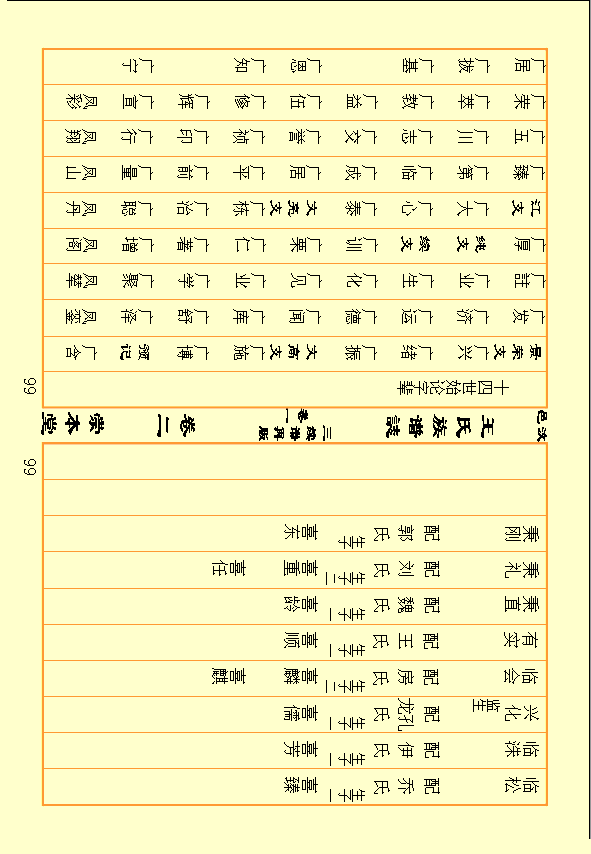 临松 配乔氏 生子一 喜臻
临洙 配伊氏 生子一 喜芳
兴化 监生 配龙孔氏 生子一 喜儒
临会 配房氏 生子二 喜麟 喜麒
有实 配王氏 生子一 喜顺
秉直 配魏氏 生子一 喜龄
秉礼 配刘氏 生子二 喜重 喜任
秉刚 配郭氏 生子 喜东
66
汶邑 王氏族谱誌 卷一 卷二 崇本堂
十四世始论字辈
景荣支 广兴 广结 广振 大商支 广施 广博 贺记 广合
广发 广济 广运 广德 广闻 广库 广舒 广泽 凤銮
广註 广业 广生 广化 广见 广业 广学 广聚 凤辇
广厚 纯支 综支 广训 广栗 广仁 广著 广增 凤阁
江支 广大 广心 广泰 大亮支 广栋 广治 广聪 凤丹
广臻 广第 广临 广成 广居 广平 广前 广量 凤山
广五 广川 广志 广交 广誉 广祯 广印 广行 凤翔
广荣 广萃 广教 广益 广伍 广修 广辉 广宣 凤彩
广居 广拔 广基 广思 广知 广宁
66